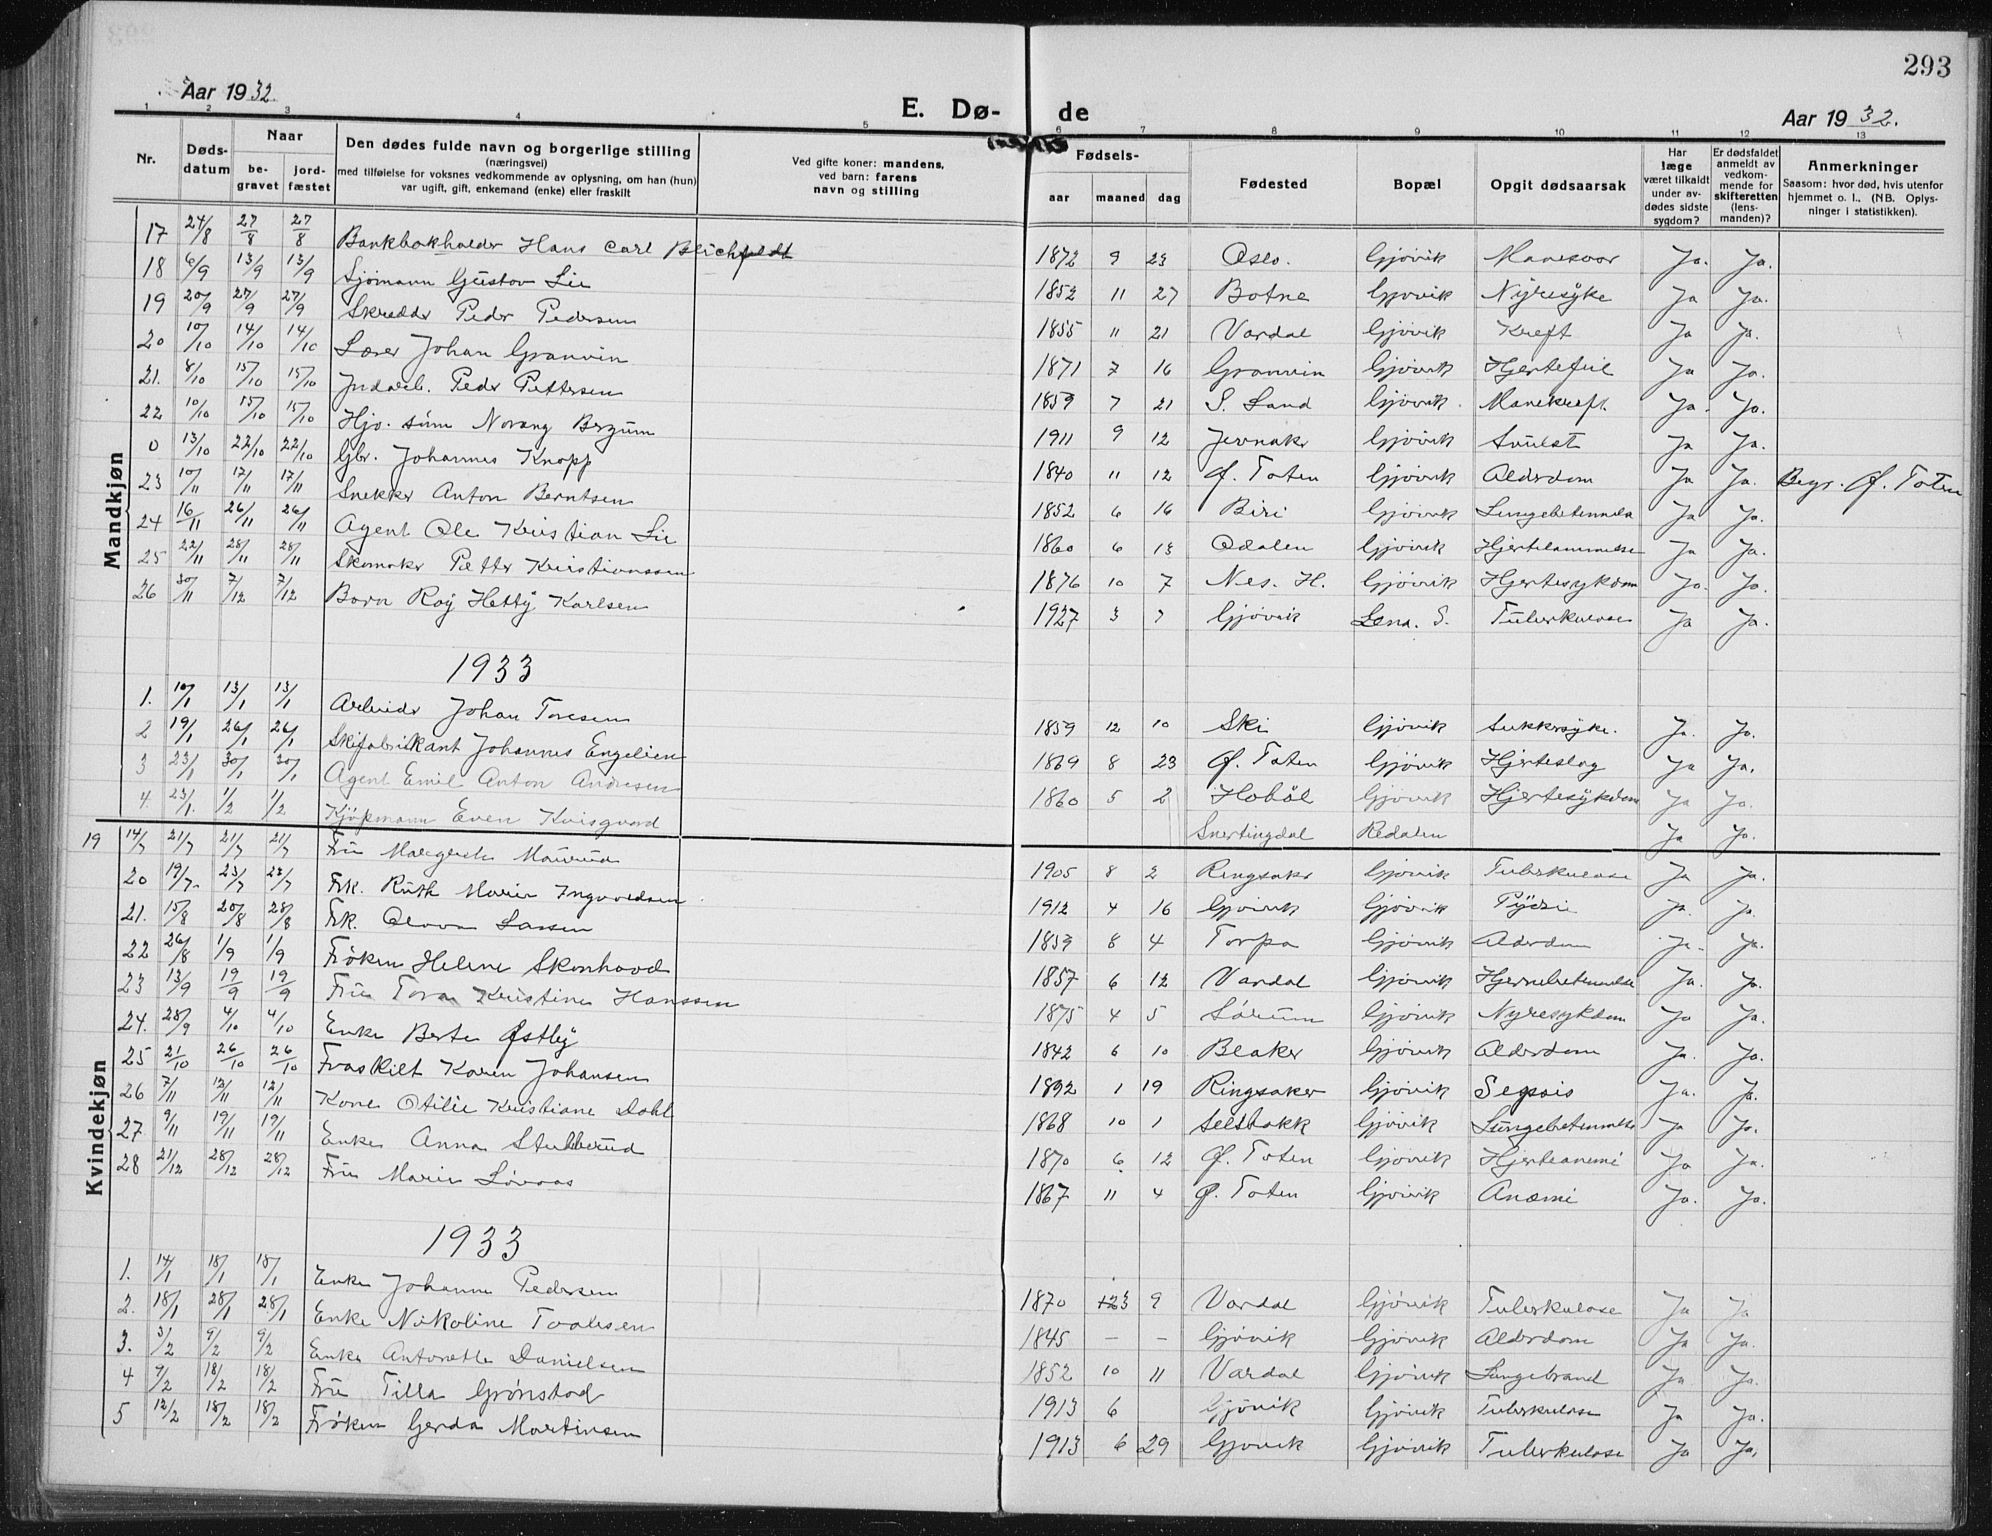 293
Aar 1932.
E. Dø-
de
Aar 1932.
1 2 3 4 5 6 7 8 9 10 11 12 13
Nr.
Døds-
datum
Naar
be-
gravet
jord-
fæstet
Den dødes fulde navn og borgerlige stilling
(næringsvei)
med tilføielse for voksnes vedkommende av oplysning, om han (hun)
var ugift, gift, enkemand (enke) eller fraskilt
Ved gifte koner: mandens,
ved barn: farens
navn og stilling
Fødsels-
aar maaned dag
Fødested
Bopæl
Opgit dødsaarsak
Har
læge
været tilkaldt
under av-
dødes sidste
sygdom?
Er dødsfaldet
anmeldt av
vedkom-
mende for
skifteretten
(lens-
manden)?
Anmerkninger
Saasom: hvor død, hvis utenfor
hjemmet o. l., (NB. Oplys-
ninger i statistikken).
Mandkjøn
17 24/8 27/8 27/8 Bankbokholder Hans Carl Blichfeldt 1872 9 23 Oslo. Gjøvik Mavesaar Ja. Ja.
18 6/9 13/9 13/9 Sjømann Gustav Lie 1852 11 27 Botne Gjøvik Nyresyke Ja Ja.
19 20/9 27/9 27/9 Skredder Peder Pedersen 1855 11 21 Vardal Gjøvik Kreft Ja Ja.
20 10/10 14/10 14/10 Læser Johan Granvin 1871 7 16 Granvin Gjøvik Hjertefeil Ja Ja.
21. 8/10 15/10 15/10 Peder Pettersen 1859 7 21 S. Land Gjøvik Mavekreft. Ja. Ja.
22 10/10 15/10 15/10 Norang Berzum 1911 9 12 Jevnaker Gjøvik Svulst Ja Ja.
0 13/10 22/10 22/10 Gbr. Johannes Knapp 1840 11 12 Ø. Toten Gjøvik Alderdom Ja Ja. Begr. Ø. Toten
23 10/11 17/11 17/11 Snekker Anton Berntsen 1852 6 16 Biri Gjøvik Lungebetennelse Ja Ja.
24 16/11 26/11 26/11 Agent Ole Kristian Lie 1860 6 13 Odalen Gjøvik Hjertelammelse Ja Ja.
25 22/11 28/11 28/11 Skomaker Petter Kristianssen 1876 10 7 Nes. H. Gjøvik Hjertesykdom Ja. Ja.
26 30/11 7/12 7/12 Barn Roy Hetty Karlsen 1927 3 7 Gjøvik Lena. S. Tuberkulose Ja Ja.
1933
1. 10/1 13/1 13/1 Arbeider Johan Toresen 1859 12 10 Ski Gjøvik Sukkersyke. Ja. Ja.
2 19/1 26/1 26/1 Skifabrikant Johannes Engelien 1869 8 23 Ø. Toten Gjøvik Hjerteslag Ja Ja.
3 23/1 30/1 30/1 Agent Emil Anton Andresen 1860 5 2 Hobøl Gjøvik Hjertesykdom Ja Ja.
4. 23/1. 1/2 1/2 Kjøpmann Even Kvisgaard Snertingdal Redalen Ja Ja.
Kvindekjøn
19 14/7 21/7 21/7 21/7 Fru Margrethe Maurud 1905 8 2 Ringsaker Gjøvik Tuberkulose Ja Ja.
20 19/7 23/7 23/7 Frk. Ruth Marie Ingvoldsen 1912 4 16 Gjøvik Gjøvik Ja. Ja.
21. 15/8 20/8 28/8 Frk. Olava Larsen 1859 8 4 Torpa Gjøvik Alderdom Ja. Ja.
22 26/8 1/9 1/9 Frøken Helene Skonhovd 1857 6 12 Vardal Gjøvik Hjernebetennelse Ja. Ja.
23 13/9 19/9 19/9 Fru Tora Kristine Hanssen 1875 4 5 Sørum Gjøvik Nyresykdom Ja Ja.
24. 28/9 4/10 4/10 Enke Berte Østby 1842 6 10 Blaker Gjøvik Alderdom Ja. Ja.
25 21/10 26/10 26/10 Fraskilt Karen Johansen 1892 1 19 Ringsaker Gjøvik Sepsis Ja. Ja.
26 7/11 12/11 12/11 Kone Otilie Kristiane Dahl 1868 10 1 Gjøvik Lungebetennelse Ja Ja.
27. 9/11 19/11 19/11 Enke Anna Stubberud 1870 6 12 Ø. Toten Gjøvik Hjerteanemi Ja Ja.
28 21/12 28/12 28/12 Fru Marie Løvaas 1867 11 4 Ø. Toten Gjøvik Anæmi Ja. Ja.
1933
1. 14/1 18/1 18/1 Enke Johanne Pedersen 1870 9 Vardal Gjøvik Tuberkulose Ja Ja
2. 18/1 28/1 28/1 Enke Nikoline Toalesen 1845 – – Gjøvik Gjøvik Alderdom Ja Ja.
3. 3/2 9/2 9/2 Enke Antonette Danielsen 1852 10 11 Vardal Gjøvik Lungebrand Ja Ja.
4 9/2 18/2 18/2 Fru Tilla Grønstad 1913 6 Gjøvik Gjøvik Tuberkulose Ja Ja.
5 12/2 18/2 18/2 Frøken Gerda Martinsen 1913 6 29 Gjøvik Gjøvik Tuberkulose Ja Ja.